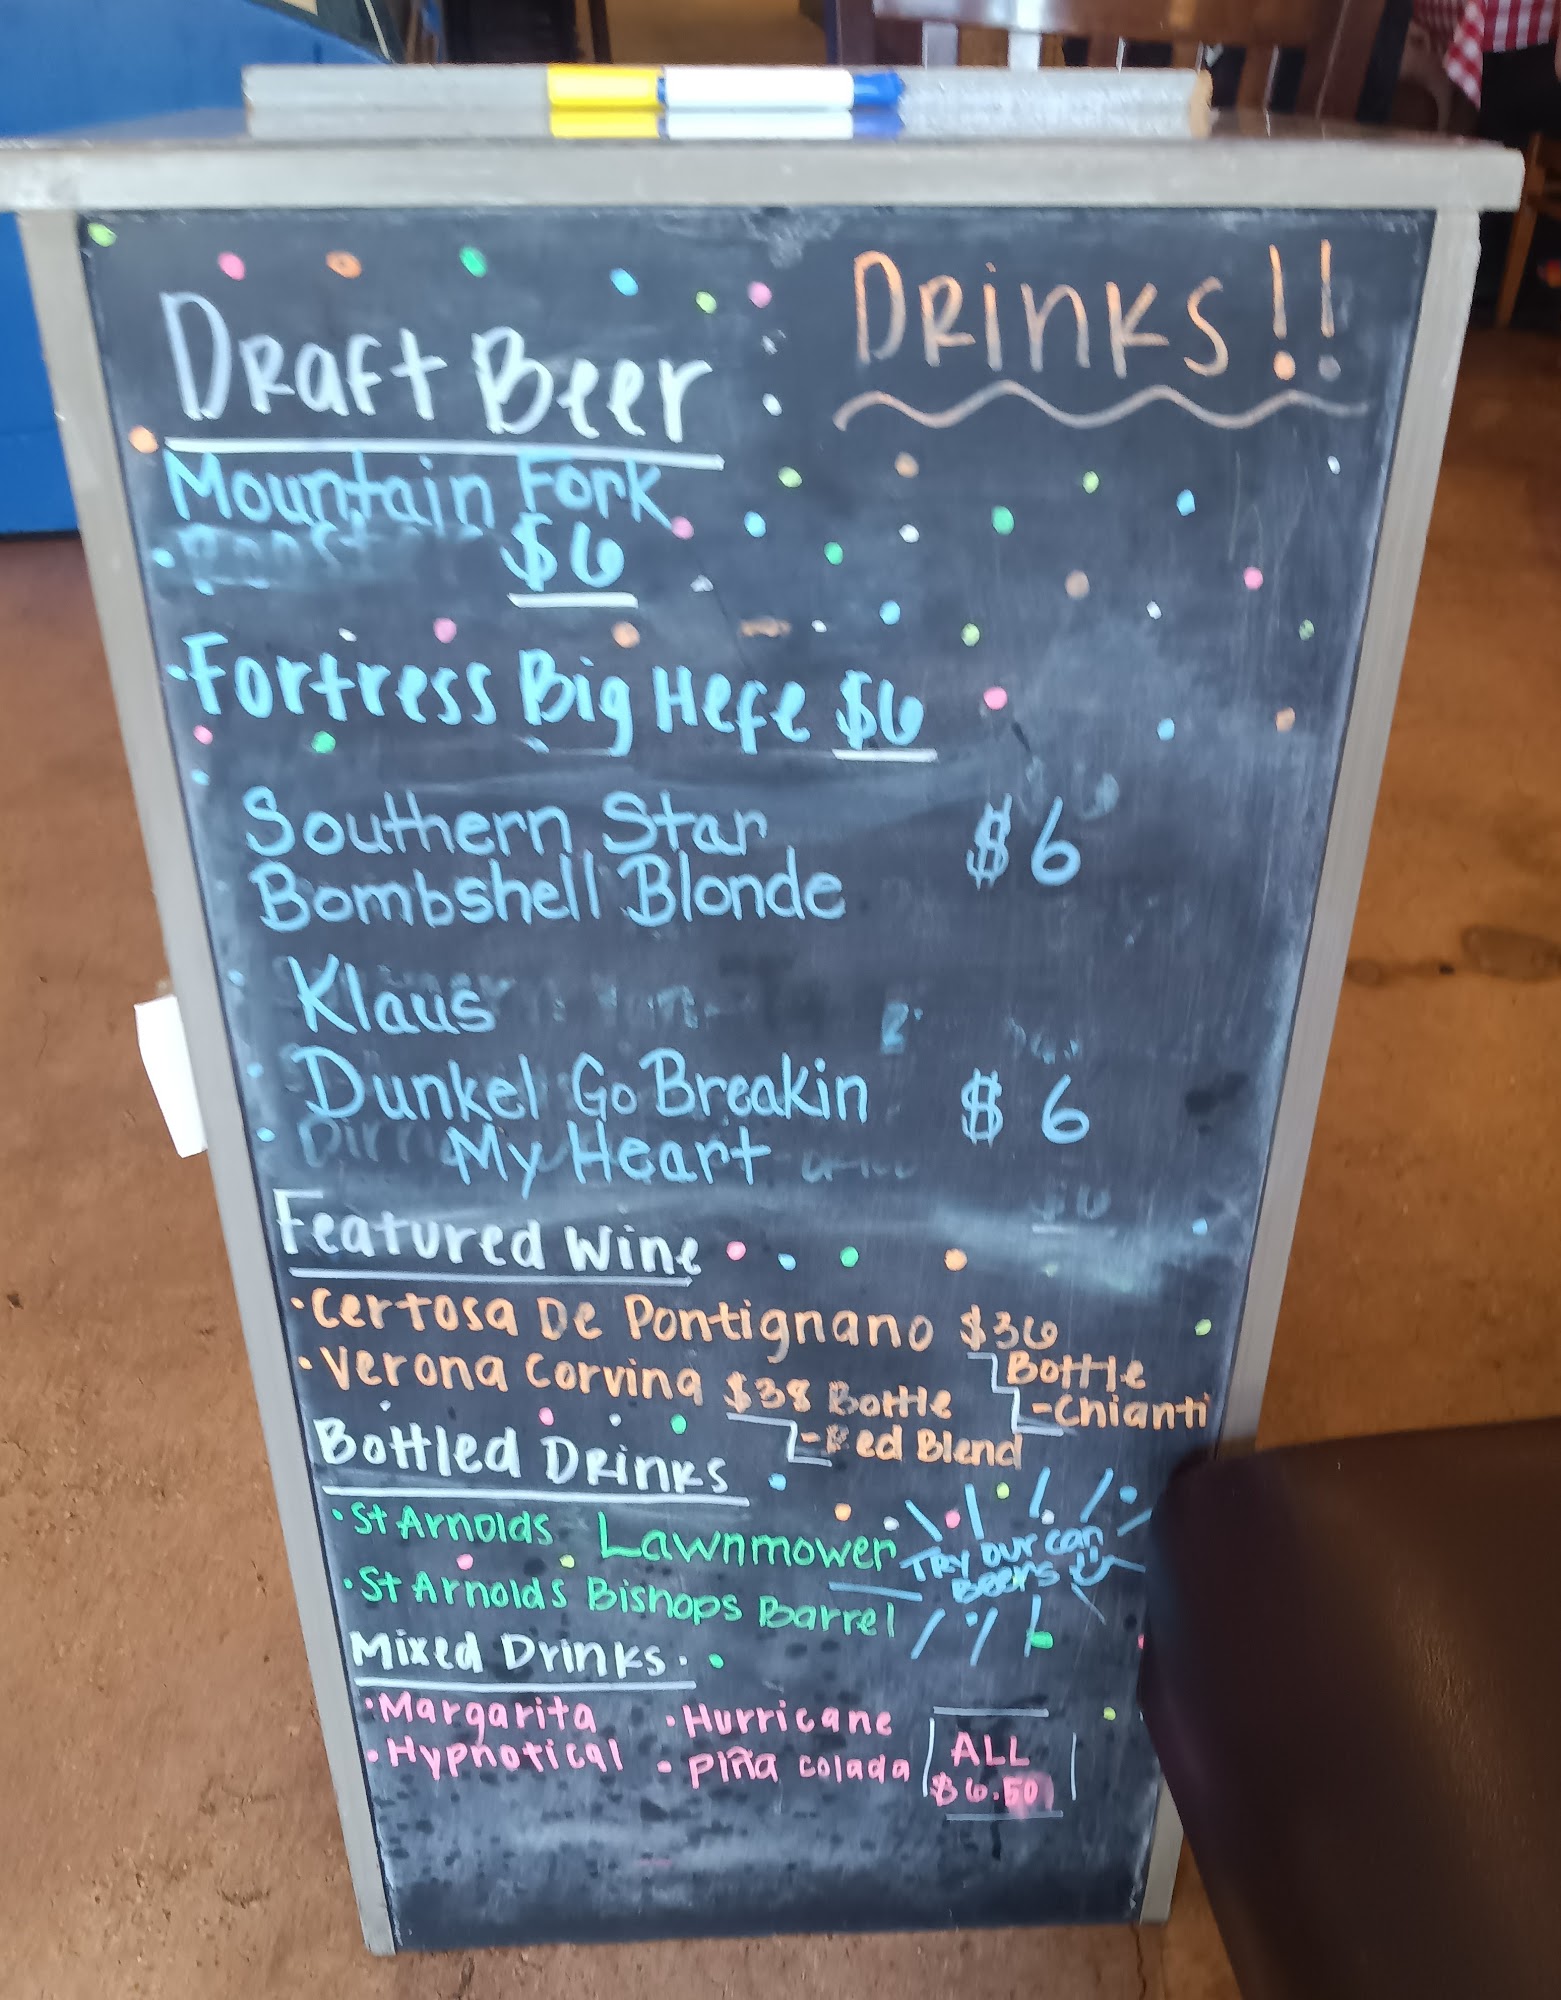 Drinks!!
Draft Beer
Mountain Fork
$6
·Fortress Big Hefe $6
Southern Star
Bombshell Blonde $6
Klaus
Dunkel Go Breakin $6
My Heart
Featured Wine
·Certosa De Pontignano $36
Bottle
-Chianti
·Verona Corvina $38 Bottle
-Red Blend
Bottled Drinks
·St Arnolds Lawnmower
·St Arnolds Bishops Barrel
Try our can
Beers
Mixed Drinks
·Margarita ·Hurricane
·Hypnotical ·Piña colada
ALL
$6.50